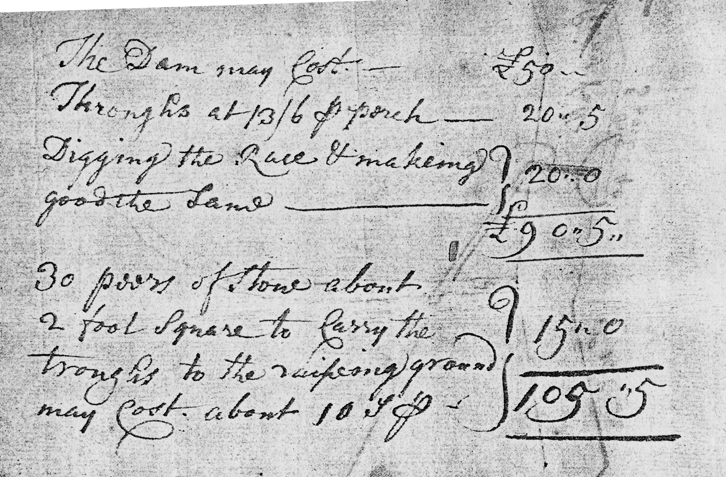 The Dam may Cost. — £50 „
Throughs at 13/6 ⅌ perch — 20„ 5
Digging the Race & makeing
good the Same — 20„ 0
£90„ 5„
30 peers of Stone about
2 foot Square to Carry the
troughs to the raiseing ground 15„ 0
may Cost. about 10 S ⅌ 105 „5